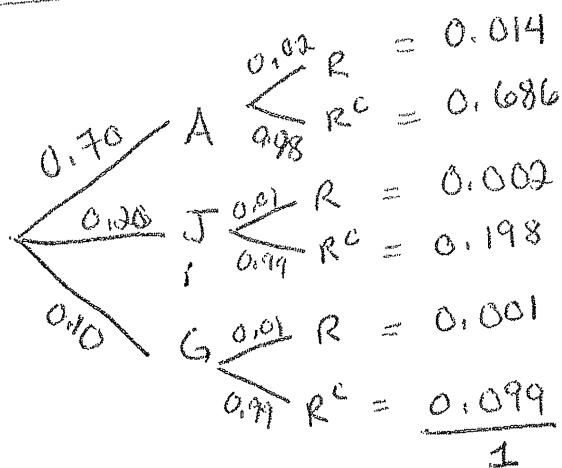 0.02 R = 0.014
0.70 A 0.98 R^c = 0.686
0.20 J 0.01 R = 0.002
0.99 R^c = 0.198
0.10 G 0.01 R = 0.001
0.99 R^c = 0.099
1